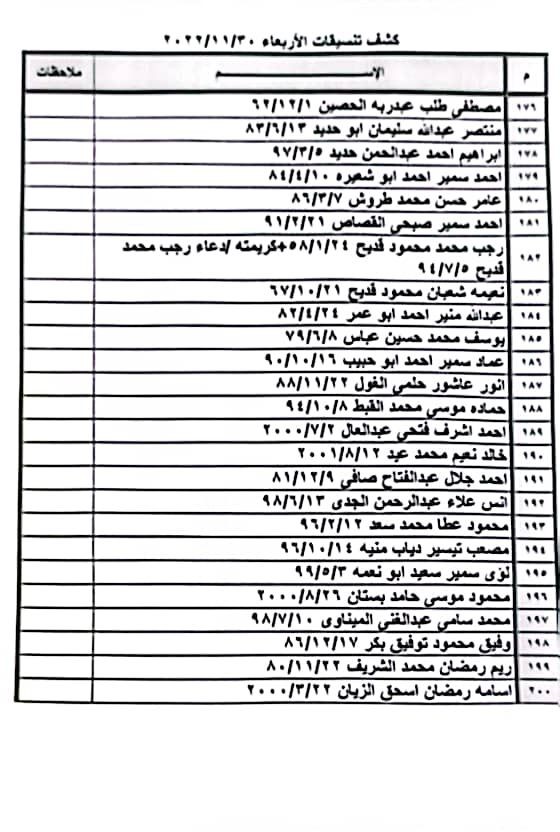 كشف تنسيقات الأربعاء ٢٠٢٢/١١/٣٠
م الاســــم ملاحظات
١٧٦ مصطفى طلب عبدربه الحصين ٦٢/١٢/١
١٧٧ منتصر عبدالله سليمان ابو حديد ٨٣/٦/١٣
١٧٨ ابراهيم احمد عبدالحمن حديد ٩٧/٣/٥
١٧٩ احمد سمير احمد ابو شعيره ٨٤/٤/١٠
١٨٠ عامر حسن محمد طروش ٨٦/٣/٧
١٨١ احمد سمير صبحي القصاص ٩١/٢/٢١
١٨٢ رجب محمد محمود قديح ٥٨/١/٢٤+كريمته /دعاء رجب محمد
قديح ٩٤/٧/٥
١٨٣ نعيمه شعبان محمود قديح ٦٧/١٠/٢١
١٨٤ عبدالله منير احمد ابو عمر ٨٢/٤/٢٤
١٨٥ يوسف محمد حسين عباس ٧٩/٦/٨
١٨٦ عماد سمير احمد ابو حبيب ٩٠/١٠/١٦
١٨٧ انور عاشور حلمي الغول ٨٨/١١/٢٢
١٨٨ حماده موسي محمد القبط ٩٤/١٠/٨
١٨٩ احمد اشرف فتحي عبدالعال ٢٠٠٠/٧/٢
١٩٠ خالد نعيم محمد عيد ٢٠٠١/٨/١٢
١٩١ احمد جلال عبدالفتاح صافي ٨١/١٢/٩
١٩٢ انس علاء عبدالرحمن الجدى ٩٨/٦/١٣
١٩٣ محمود عطا محمد سعد ٩٦/٢/١٢
١٩٤ مصعب تيسير دياب منيه ٩٦/١٠/١٤
١٩٥ لؤى سمير سعيد ابو نعمه ٩٩/٥/٣
١٩٦ محمود موسي حامد بستان ٢٠٠٠/٨/٢٦
١٩٧ محمد سامي عبدالغني الميناوى ٩٨/٧/١٠
١٩٨ وفيق محمود توفيق بكر ٨٦/١٢/١٧
١٩٩ ريم رمضان محمد الشريف ٨٠/١١/٢٢
٢٠٠ اسامه رمضان اسحق الزيان ٢٠٠٠/٣/٢٢